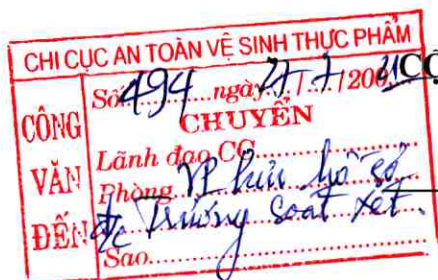 CHI CỤC AN TOÀN VỆ SINH THỰC PHẨM
CÔNG VĂN ĐẾN
Số 494 ngày 27/7/200
CHUYỂN
Lãnh đạo CC
Phòng VP lưu hồ sơ
Đ/c Trường soát xét.
Sao